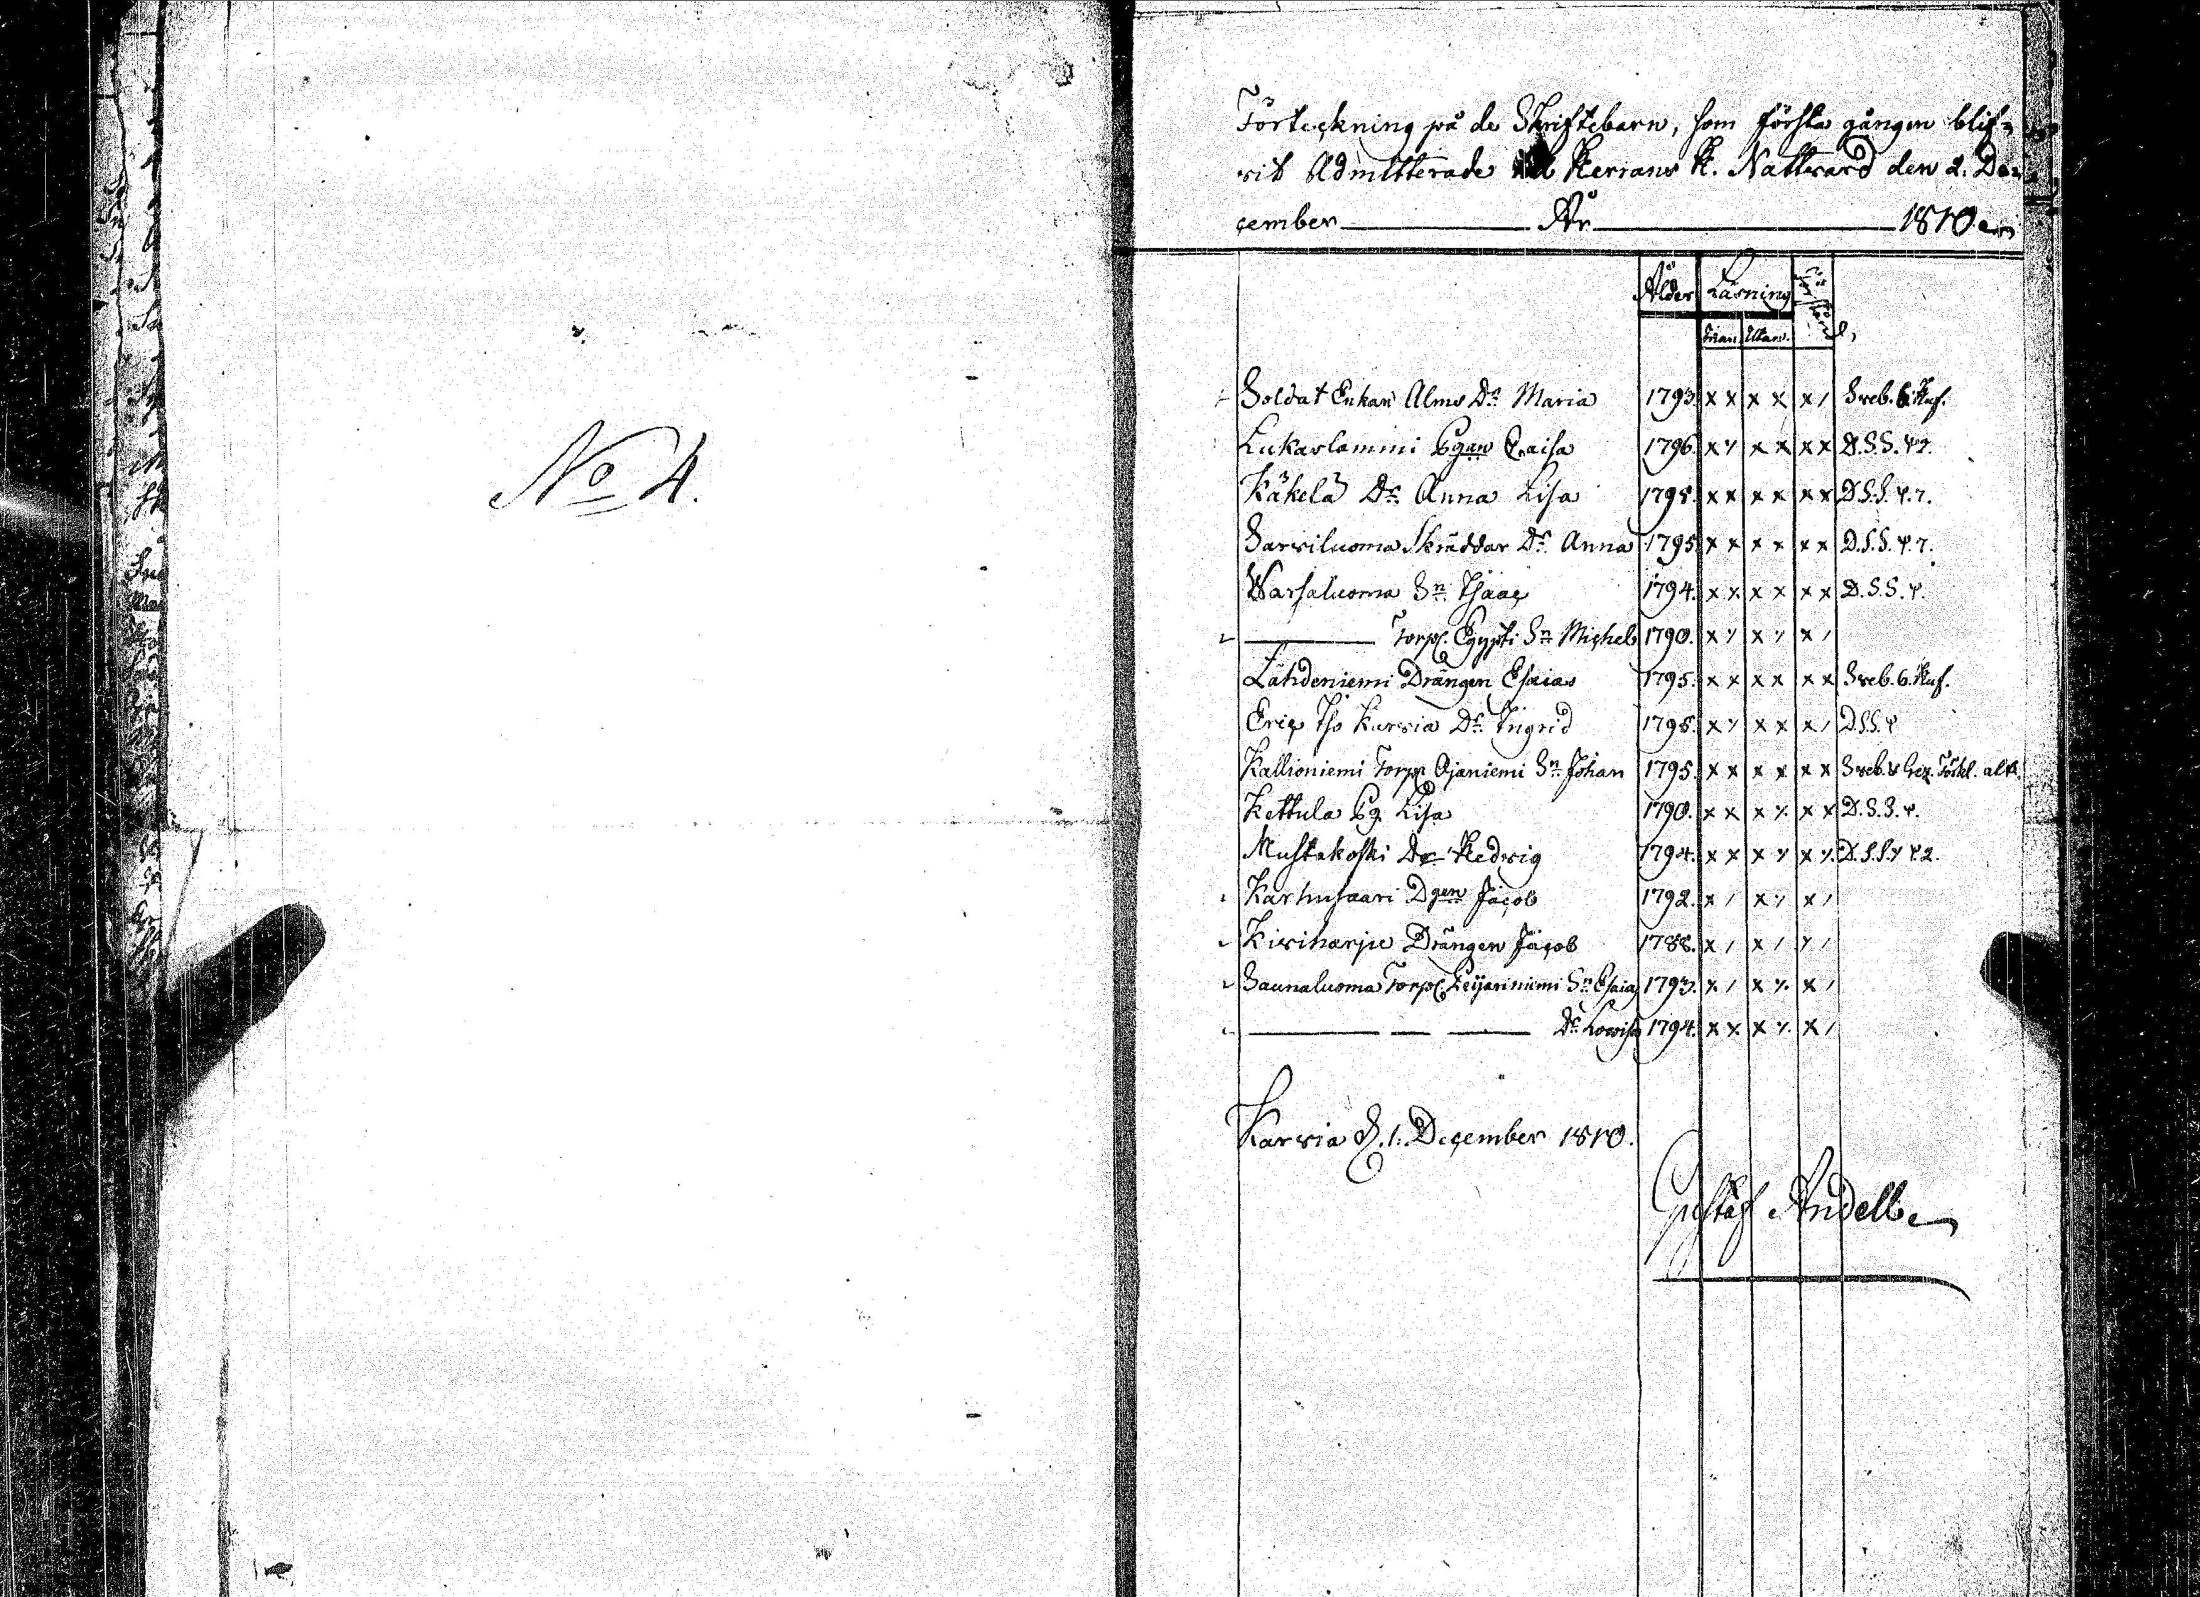 No 4.
Förteckning på de Skriftebarn, som första gången blif-
vit Admitterade till Herrans H. Nattvard den 2. De-
cember ——— År ——— 1810
Ålder Läsning
Innan Utan
Soldat Enkan Alms Dr Maria 1793. x x x x x / Sveb. 6. Huf.
Lukaslammi Pgan Caisa 1796. x y x x x x D. S. S.
Käkelä Dr Anna Lisa 1795. x x x x x x D. S. S.
Sarviluoma Skräddar Dr Anna 1795 x x x x x x D. S. S.
Warsaluoma Sn Isaac 1794. x x x x x x D. S. S.
——— Torp. Egypti Sn Michel 1790. x y x y x /
Lähdeniemi Drängen Esaias 1795. x x x x x x Sveb. 6. Huf.
Eric Iso Karvia Dr Ingrid 1795. x y x x x / D. S. S.
Kallioniemi Torp. Ojaniemi Sn Johan 1795. x x x x x x Sveb.
Kettula Pg. Lisa 1790. x x x y. x x D. S. S.
Mustakoski Dr Hedvig 1794. x x x y x y. D. S. S.
Karhusaari Dgen Jacob 1792. x / x y x /
Kiviharju Drängen Jacob 1788. x / x / y /
Saunaluoma Torp. Leijariniemi Sn Esaias 1793. x / x y. x /
——— — ——— Dr Lovisa 1794. x x x y. x /
Karvia d. 1. December 1810.
Gustaf Andell